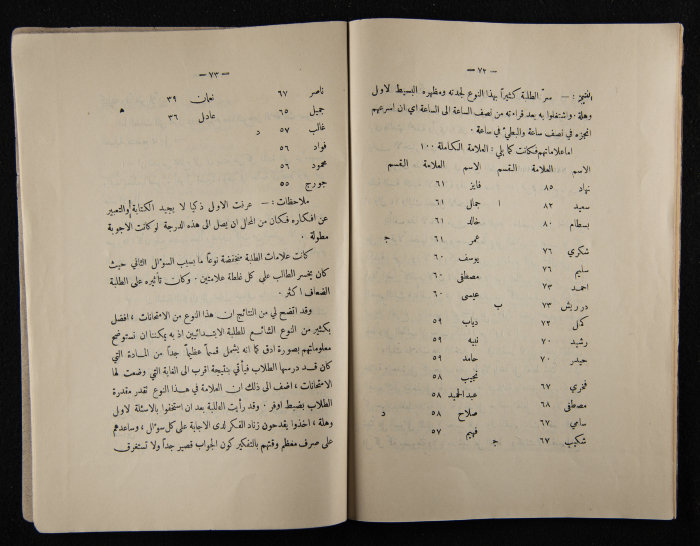 — ٧٢ —
النتيجة : — سرّ الطلبة كثيراً بهذا النوع لجدته ومظهره البسيط لاول
وهلة. واشتغلوا به بعد قراءته من نصف الساعة الى الساعة اي ان اسرعهم
انجزه في نصف ساعة والبطيّ في ساعة .
اما علاماتهم فكانت كما يلي : العلامة الكاملة ١٠٠
الاسم العلامة القسم الاسم العلامة القسم
نهاد ٨٥ ا فايز ٦١
سعيد ٨٢ ا جمال ٦١
بسطام ٨٠ خالد ٦١
عمر ٦١ ج
شكري ٧٦ يوسف ٦٠
سليم ٧٦ مصطفى ٦٠
احمد ٧٣ عيسى ٦٠
درويش ٧٣ ب
كمل ٧٢ دياب ٥٩
رشيد ٧٠ نبيه ٥٩
حيدر ٧٠ حامد ٥٩
نجيب ٥٨
فخري ٦٧ عبد الحميد ٥٨
مصطفى ٦٨ صلاح ٥٨ د
سامي ٦٧ فهيم ٥٧
شكيب ٦٧ ج
— ٧٣ —
ناصر ٦٧ نعمان ٣٩
جميل ٦٥ عادل ٣٦ ه
غالب ٥٧ د
فواد ٥٦
محمود ٥٦
جورج ٥٥
ملاحظات : — عرفت الاول ذكيا لا يجيد الكتابة والتعبير
عن افكاره فكان من المحال ان يصل الى هذه الدرجة لو كانت الاجوبة
مطولة .
كانت علامات الطلبة منخفضة نوعاً ما بسبب السوءال الثاني حيث
كان يخسر الطالب على كل غلطة علامتين . وكان تأثيره على الطلبة
الضعاف اكثر .
وقد اتضح لي من النتائج ان هذا النوع من الامتحانات ، افضل
بكثير من النوع الشائع للطلبة الابتدائيين اذ به يمكننا ان نستوضح
معلوماتهم بصورة ادق كما انه يشمل قسماً عظيماً جداً من المادة التي
كان قد درسها الطلاب فيأتي بنتيجة اقرب الى الغاية التي وضعت لها
الامتحانات ، اضف الى ذلك ان العلامة في هذا النوع تقدر مقدرة
الطلاب بضبط اوفر . وقد رأيت الطلبة بعد ان استخفوا بالاسئلة لاول
وهلة ، اخذوا يقدحون زناد الفكر لدى الاجابة على كل سوءال ، وساعدهم
على صرف معظم وقتهم بالتفكير كون الجواب قصير جداً ولا تستغرق